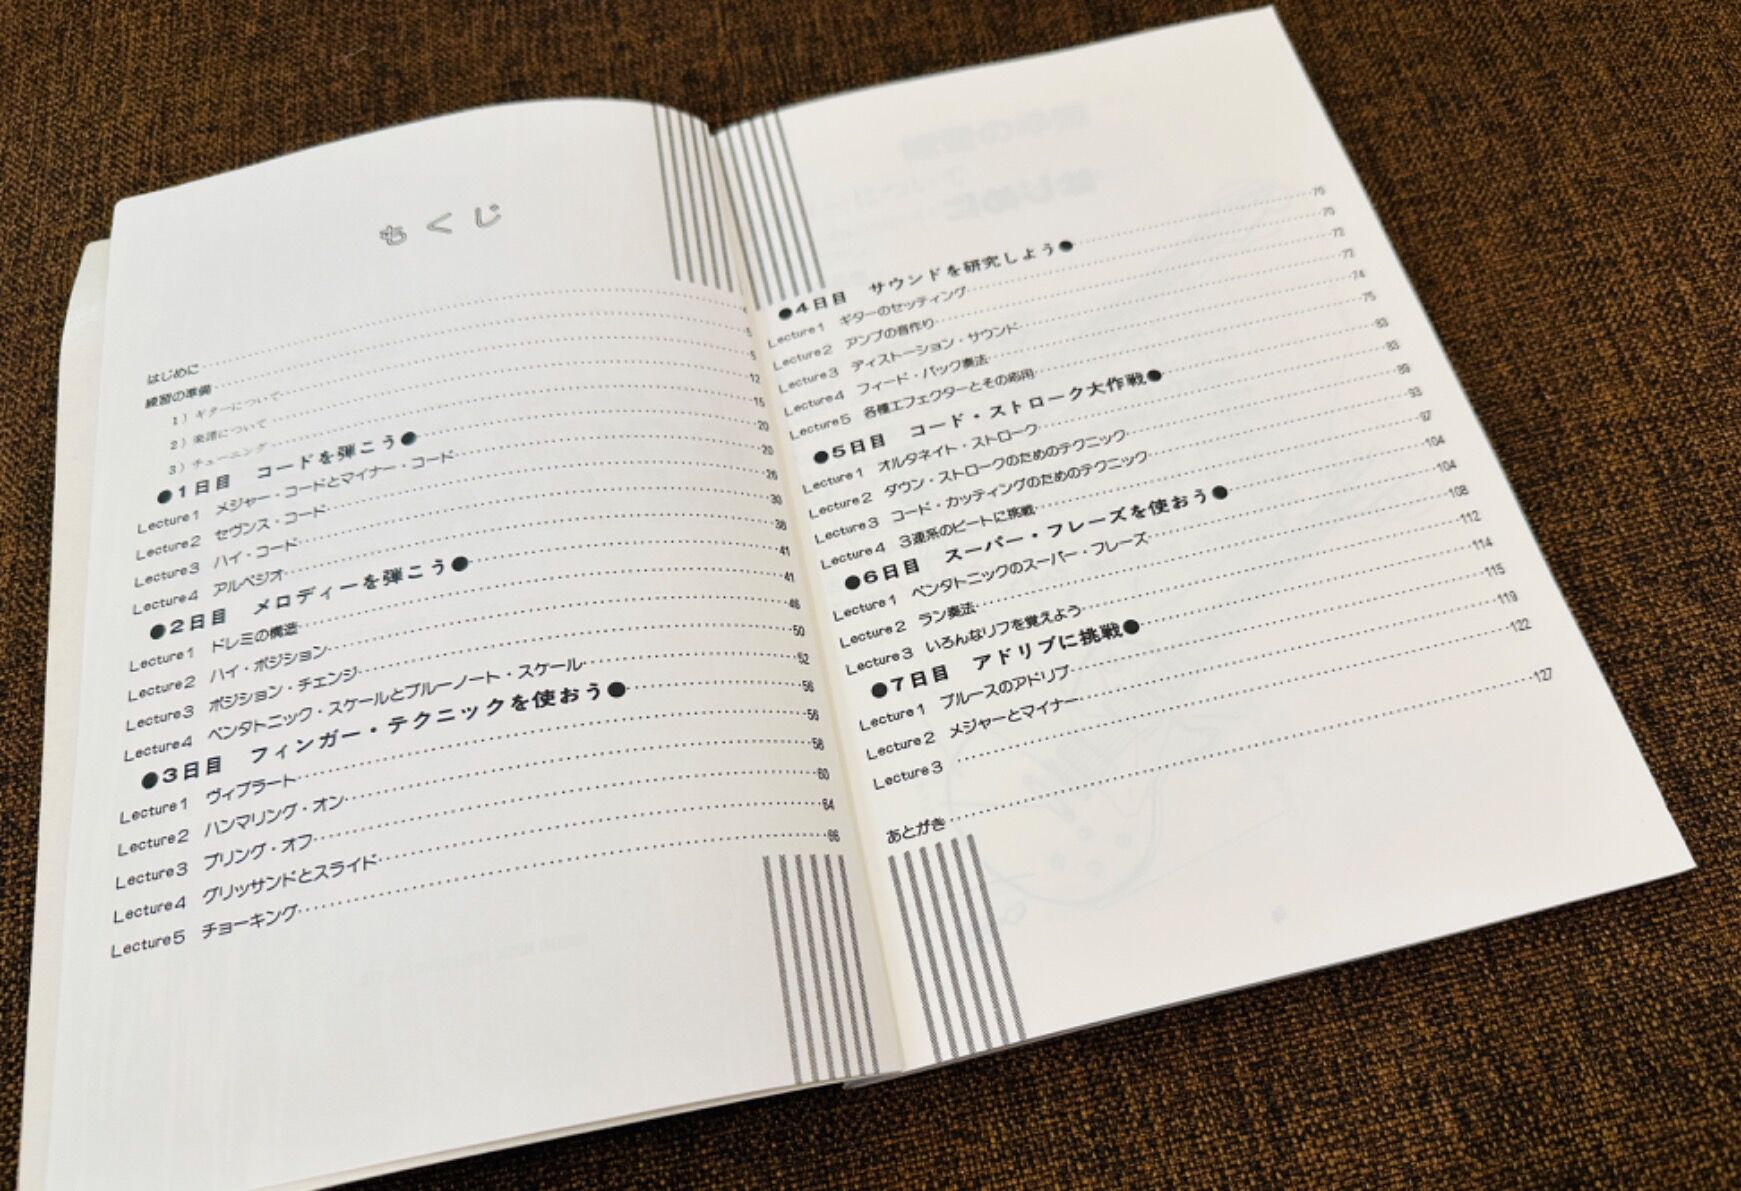 もくじ
はじめに……4
練習の準備……5
1）ギターについて……5
2）楽譜について……12
3）チューニング……15
●1日目　コードを弾こう●……20
Lecture1　メジャー・コードとマイナー・コード……20
Lecture2　セヴンス・コード……26
Lecture3　ハイ・コード……30
Lecture4　アルペジオ……38
●2日目　メロディーを弾こう●……41
Lecture1　ドレミの構造……41
Lecture2　ハイ・ポジション……46
Lecture3　ポジション・チェンジ……50
Lecture4　ペンタトニック・スケールとブルーノート・スケール……52
●3日目　フィンガー・テクニックを使おう●……56
Lecture1　ヴィブラート……56
Lecture2　ハンマリング・オン……58
Lecture3　プリング・オフ……60
Lecture4　グリッサンドとスライド……64
Lecture5　チョーキング……66
●4日目　サウンドを研究しよう●……70
Lecture1　ギターのセッティング……70
Lecture2　アンプの音作り……72
Lecture3　ディストーション・サウンド……72
Lecture4　フィード・バック奏法……74
Lecture5　各種エフェクターとその応用……75
●5日目　コード・ストローク大作戦●……83
Lecture1　オルタネイト・ストローク……83
Lecture2　ダウン・ストロークのためのテクニック……89
Lecture3　コード・カッティングのためのテクニック……93
Lecture4　3連系のビートに挑戦……97
●6日目　スーパー・フレーズを使おう●……104
Lecture1　ペンタトニックのスーパー・フレーズ……104
Lecture2　ラン奏法……108
Lecture3　いろんなリフを覚えよう……112
●7日目　アドリブに挑戦●……114
Lecture1　ブルースのアドリブ……115
Lecture2　メジャーとマイナー……119
Lecture3　……122
あとがき……127